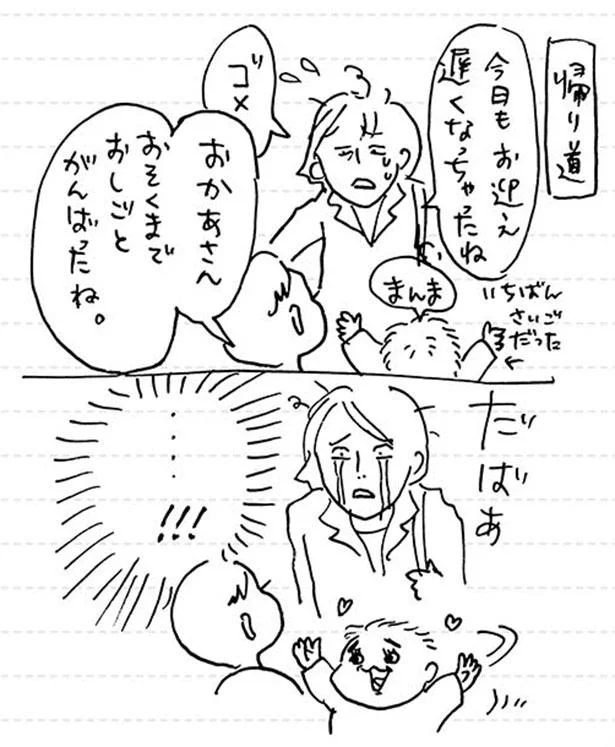 帰り道
今日もお迎え
遅くなっちゃったね
ゴメ゙
おかあさん
おそくまで
おしごと
がんばったね。
まんま
いちばん
さいご
だった
だばぁ
...
!!!